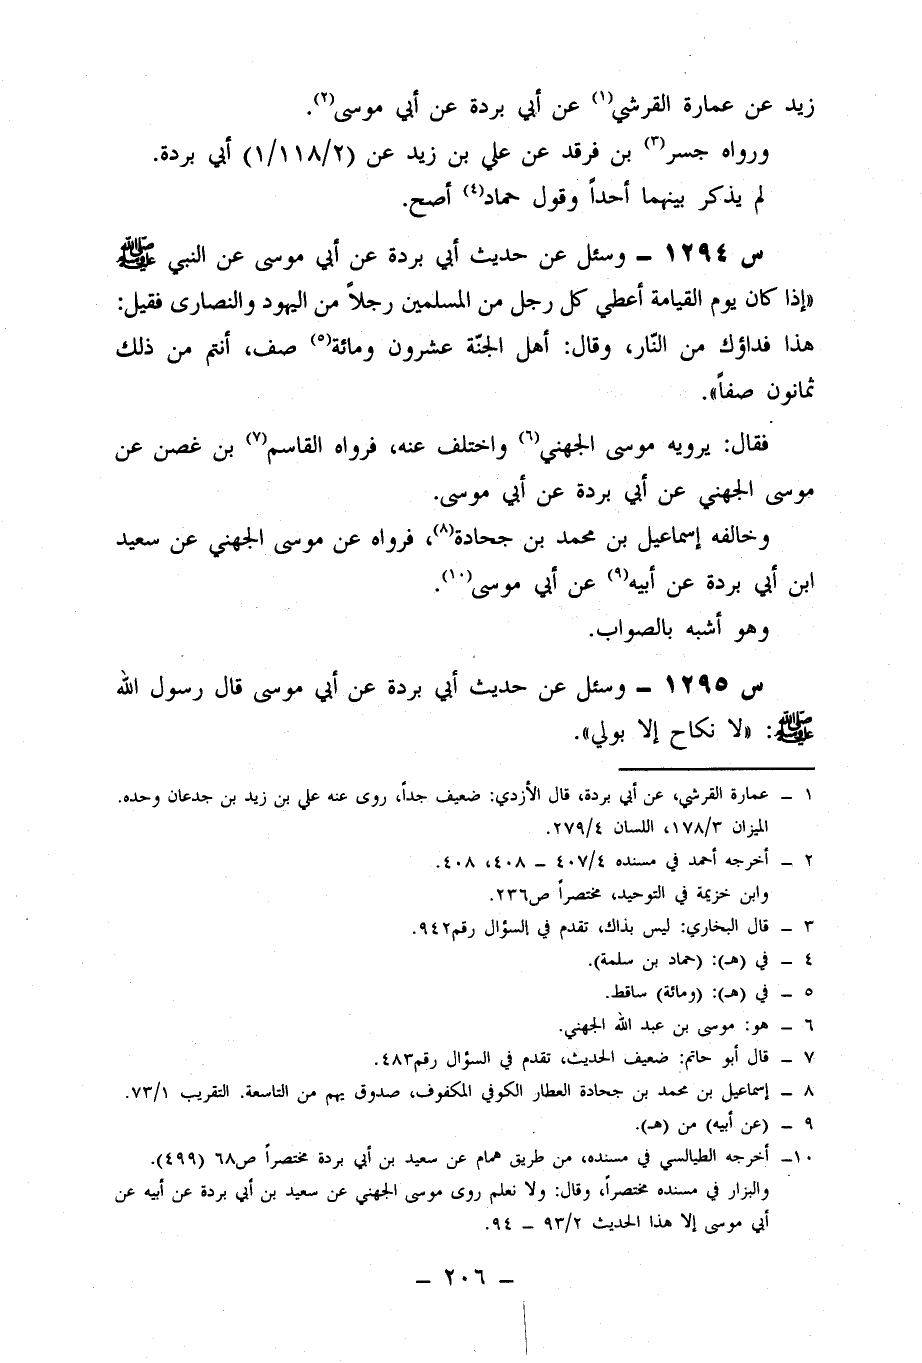 زيد عن عمارة القرشي(١) عن أبي بردة عن أبي موسى(٢).
ورواه جسر(٣) بن فرقد عن علي بن زيد عن (١/١١٨/٢) أبي بردة.
لم يذكر بينهما أحداً وقول حماد(٤) أصح.
س ١٢٩٤ – وسئل عن حديث أبي بردة عن أبي موسى عن النبي ﷺ
«إذا كان يوم القيامة أعطي كل رجل من المسلمين رجلاً من اليهود والنصارى فقيل:
هذا فداؤك من النّار، وقال: أهل الجنّة عشرون ومائة(٥) صف، أنتم من ذلك
ثمانون صفاً».
فقال: يرويه موسى الجهني(٦) واختلف عنه، فرواه القاسم(٧) بن غصن عن
موسى الجهني عن أبي بردة عن أبي موسى.
وخالفه إسماعيل بن محمد بن جحادة(٨)، فرواه عن موسى الجهني عن سعيد
ابن أبي بردة عن أبيه(٩) عن أبي موسى(١٠).
وهو أشبه بالصواب.
س ١٢٩٥ – وسئل عن حديث أبي بردة عن أبي موسى قال رسول الله
ﷺ: «لا نكاح إلا بولي».
١ – عمارة القرشي، عن أبي بردة، قال الأزدي: ضعيف جداً، روى عنه علي بن زيد بن جدعان وحده.
الميزان ١٧٨/٣، اللسان ٢٧٩/٤.
٢ – أخرجه أحمد في مسنده ٤٠٧/٤ – ٤٠٨، ٤٠٨.
وابن خزيمة في التوحيد، مختصراً ص٢٣٦.
٣ – قال البخاري: ليس بذاك، تقدم في السؤال رقم٩٤٢.
٤ – في (هـ): (حماد بن سلمة).
٥ – في (هـ): (ومائة) ساقط.
٦ – هو: موسى بن عبد الله الجهني.
٧ – قال أبو حاتم: ضعيف الحديث، تقدم في السؤال رقم٤٨٣.
٨ – إسماعيل بن محمد بن جحادة العطار الكوفي المكفوف، صدوق يهم من التاسعة. التقريب ٧٣/١.
٩ – (عن أبيه) من (هـ).
١٠– أخرجه الطيالسي في مسنده، من طريق همام عن سعيد بن أبي بردة مختصراً ص٦٨ (٤٩٩).
والبزار في مسنده مختصراً، وقال: ولا نعلم روى موسى الجهني عن سعيد بن أبي بردة عن أبيه عن
أبي موسى إلا هذا الحديث ٩٣/٢ – ٩٤.
– ٢٠٦ –